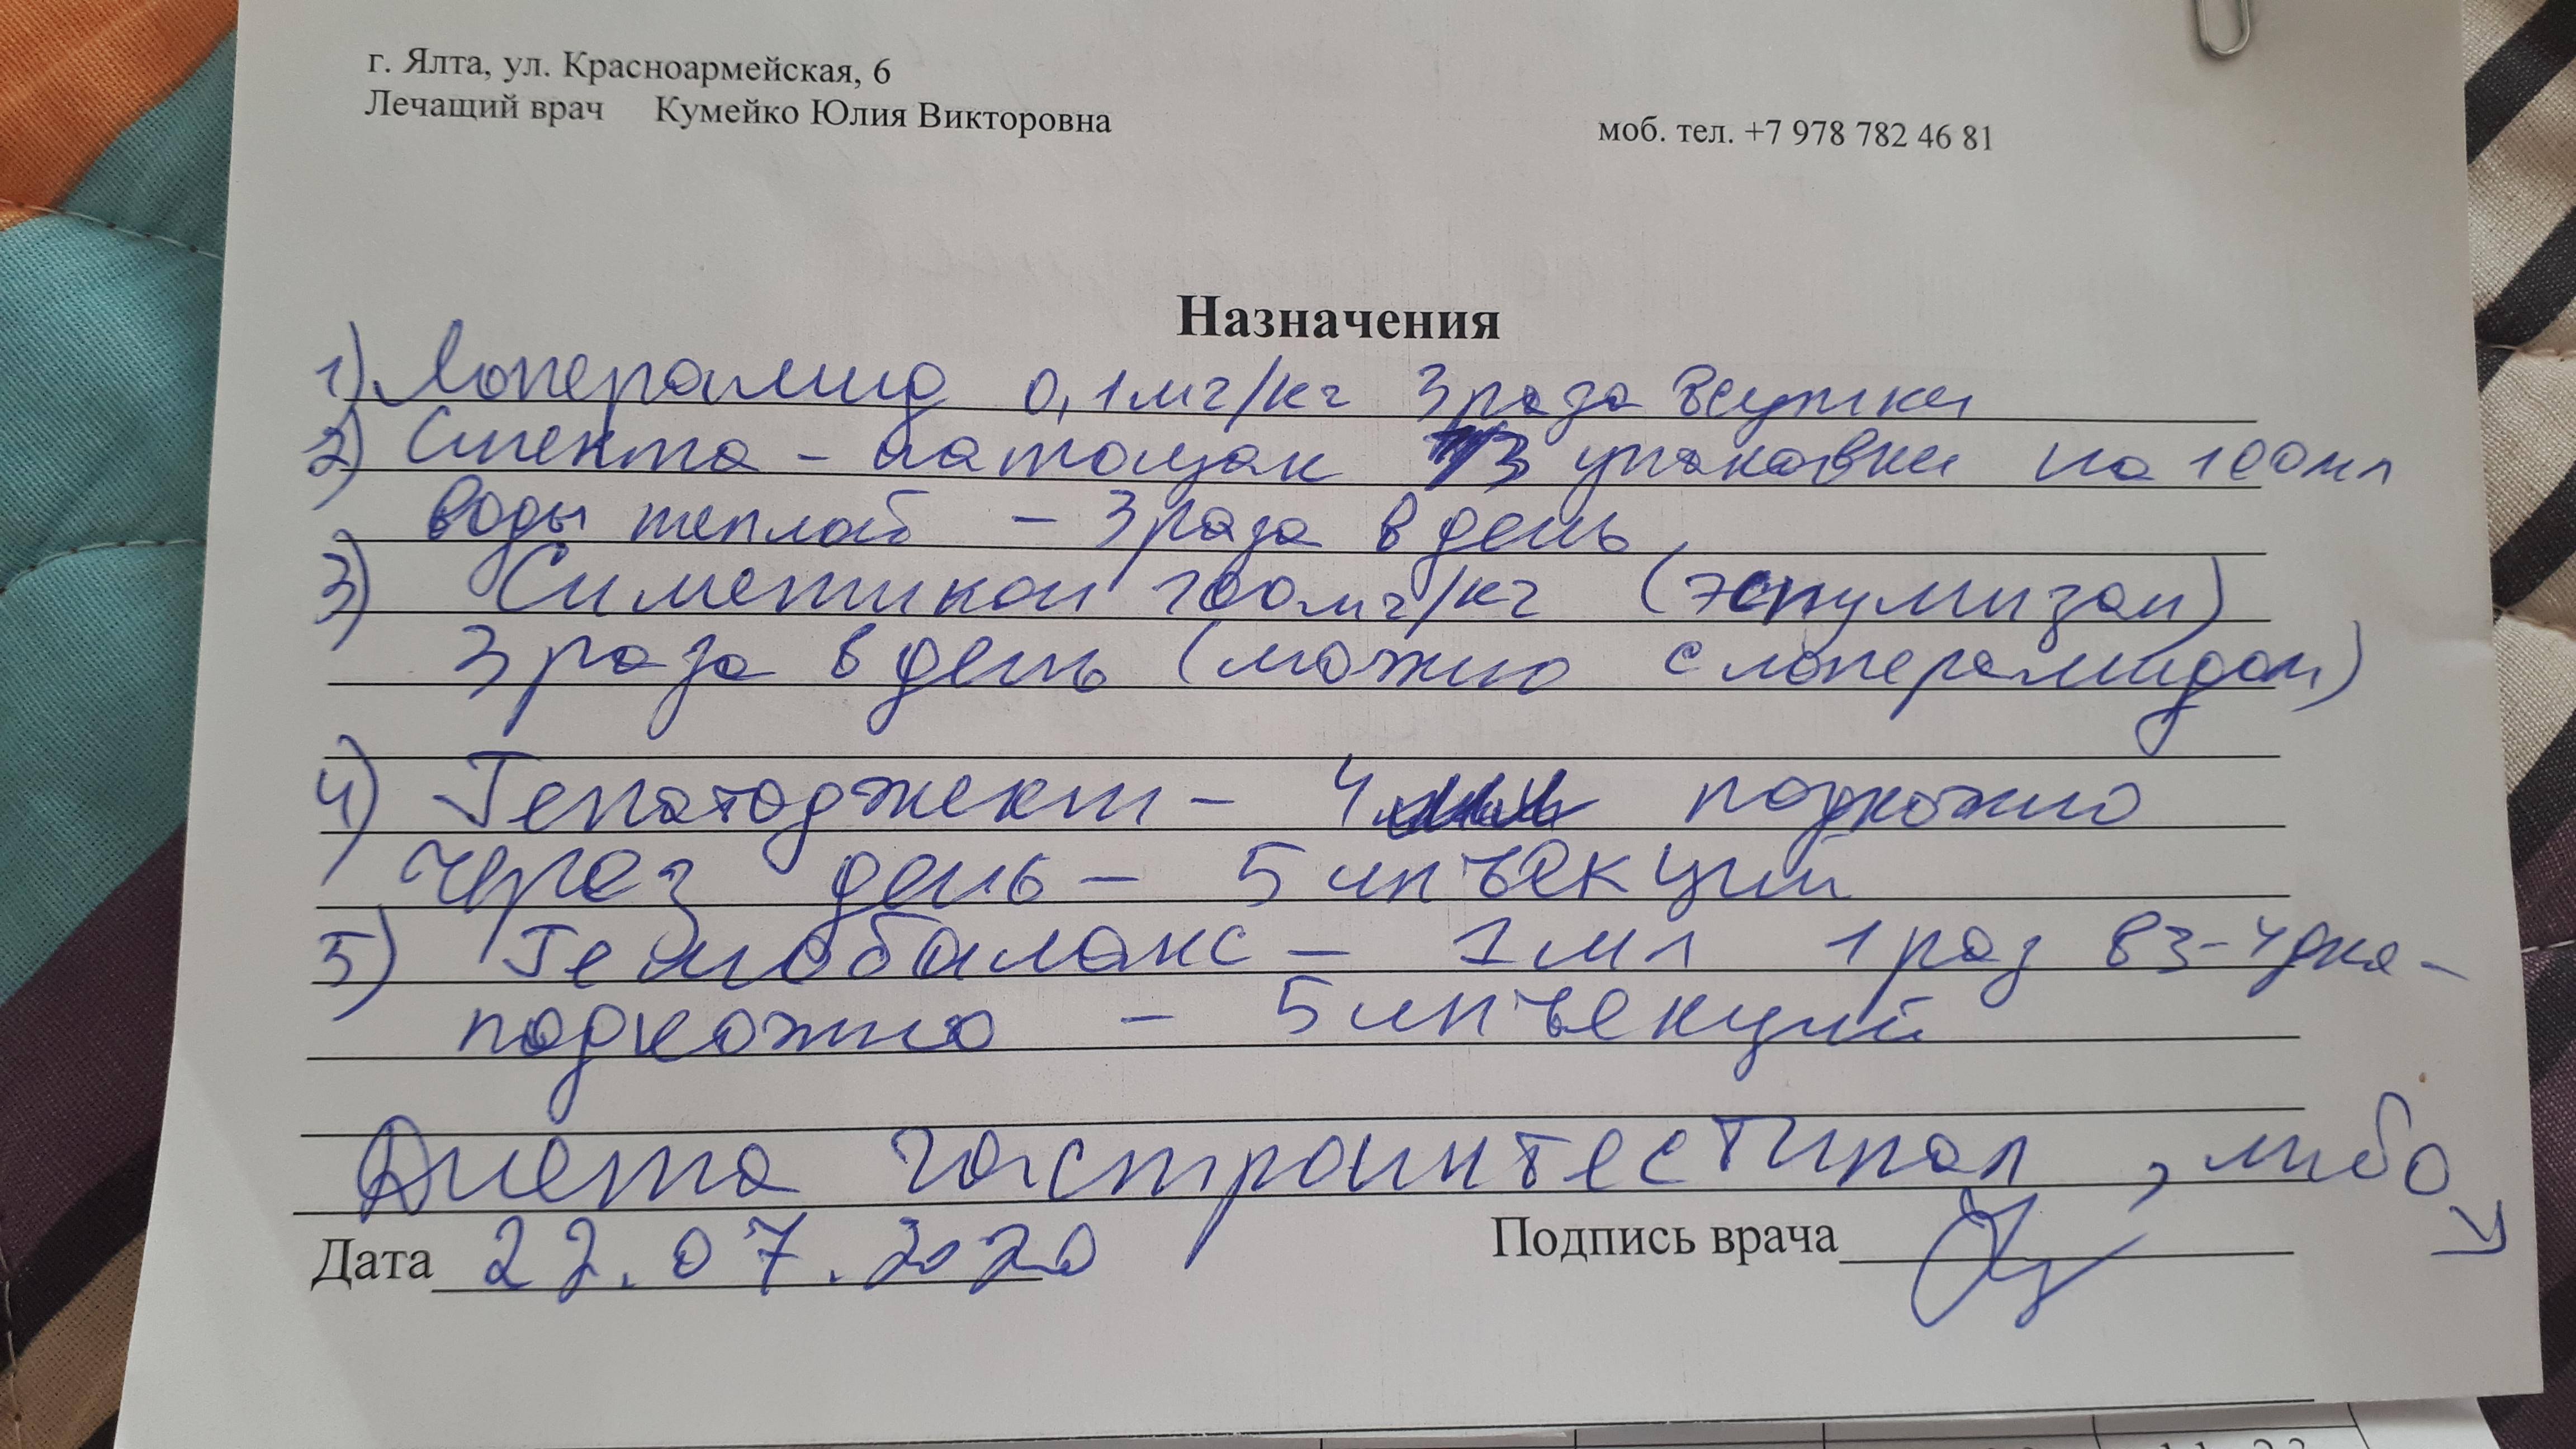 г. Ялта, ул. Красноармейская, 6
Лечащий врач Кумейко Юлия Викторовна
моб. тел. +7 978 782 46 81
Назначения
1) Лоперамид 0,1мг/кг 3 раза в сутки
2) Смекта - натощак 1/3 упаковки на 100мл
воды теплой - 3 раза в день
3) Симетикон 100мг/кг (эспумизан)
3 раза в день (можно с лоперамидом)
4) Гепатоджект - 4 подкожно
через день - 5 инъекций
5) Гемобаланс - 1 мл 1 раз в 3-4 дня -
подкожно - 5 инъекций
Диета гастроинтестинал, либо
Дата 22.07.2020
Подпись врача